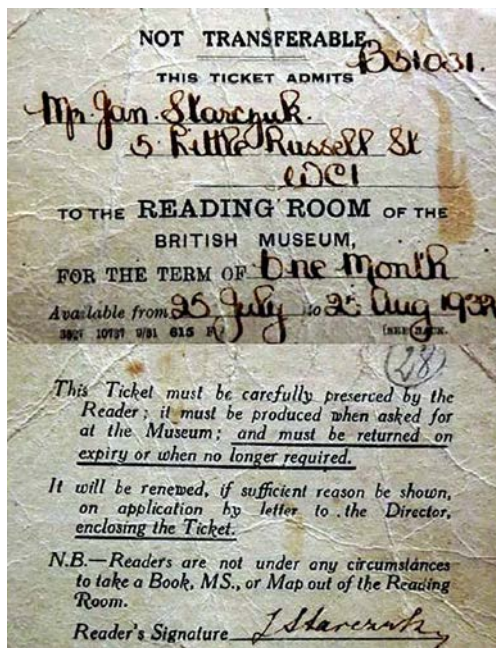 NOT TRANSFERABLE
B51031.
THIS TICKET ADMITS
Mr. Jan Starczuk.
5 Little Russell St
WC1
TO THE READING ROOM OF THE
BRITISH MUSEUM,
FOR THE TERM OF One Month
Available from 25 July to 25 Aug 1932
10737 9/31 615 (SEE BACK.
28
This Ticket must be carefully preserved by the
Reader; it must be produced when asked for
at the Museum; and must be returned on
expiry or when no longer required.
It will be renewed, if sufficient reason be shown,
on application by letter to the Director,
enclosing the Ticket.
N.B.—Readers are not under any circumstances
to take a Book, MS., or Map out of the Reading
Room.
Reader's Signature J Starczuk